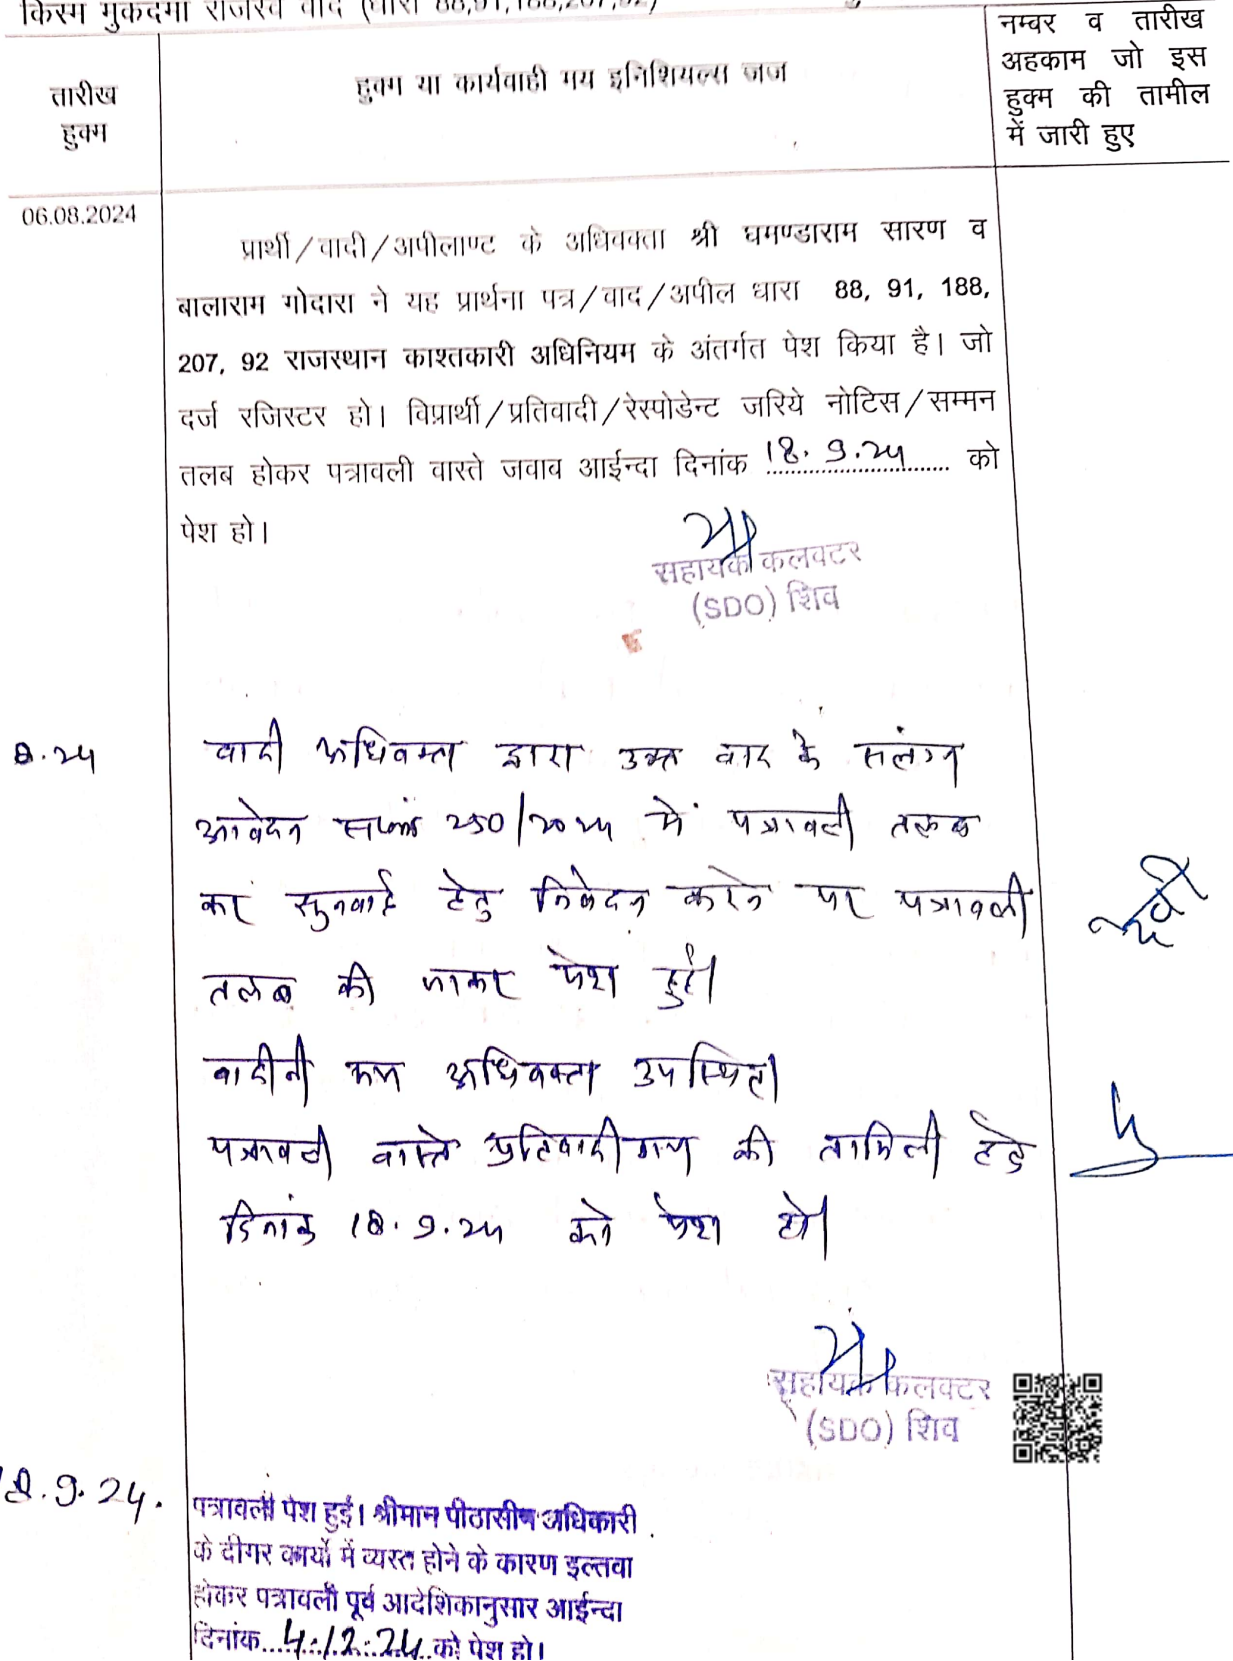 किस्म मुकदमा राजस्व वाद (धारा 88,91,188,207,92)
तारीख
हुक्म
हुक्म या कार्यवाही मय इनिशियल्स जज
नम्बर व तारीख
अहकाम जो इस
हुक्म की तामील
में जारी हुए
06.08.2024
प्रार्थी/वादी/अपीलाण्ट के अधिवक्ता श्री घमण्डाराम सारण व
बालाराम गोदारा ने यह प्रार्थना पत्र/वाद/अपील धारा 88, 91, 188,
207, 92 राजस्थान काश्तकारी अधिनियम के अंतर्गत पेश किया है। जो
दर्ज रजिस्टर हो। विप्रार्थी/प्रतिवादी/रेस्पोडेन्ट जरिये नोटिस/सम्मन
तलब होकर पत्रावली वास्ते जवाब आईन्दा दिनांक 18.9.24 को
पेश हो।
सहायक कलक्टर
(SDO) शिव
8.24
वादी अधिवक्ता द्वारा उक्त वाद के सलंग्न
आवेदन 250/2024 में पत्रावली तलब
कर सुनवाई हेतु निवेदन करने पर पत्रावली
तलब की जाकर पेश हुई।
वादीनी मय अधिवक्ता उपस्थित।
पत्रावली वास्ते प्रतिवादीगण की तामिली हेतु
दिनांक 18.9.24 को पेश हो।
सहायक कलक्टर
(SDO) शिव
18.9.24.
पत्रावली पेश हुई। श्रीमान पीठासीन अधिकारी
के दीगर कार्यो में व्यस्त होने के कारण इल्तवा
होकर पत्रावली पूर्व आदेशिकानुसार आईन्दा
दिनांक 4.12.24 को पेश हो।